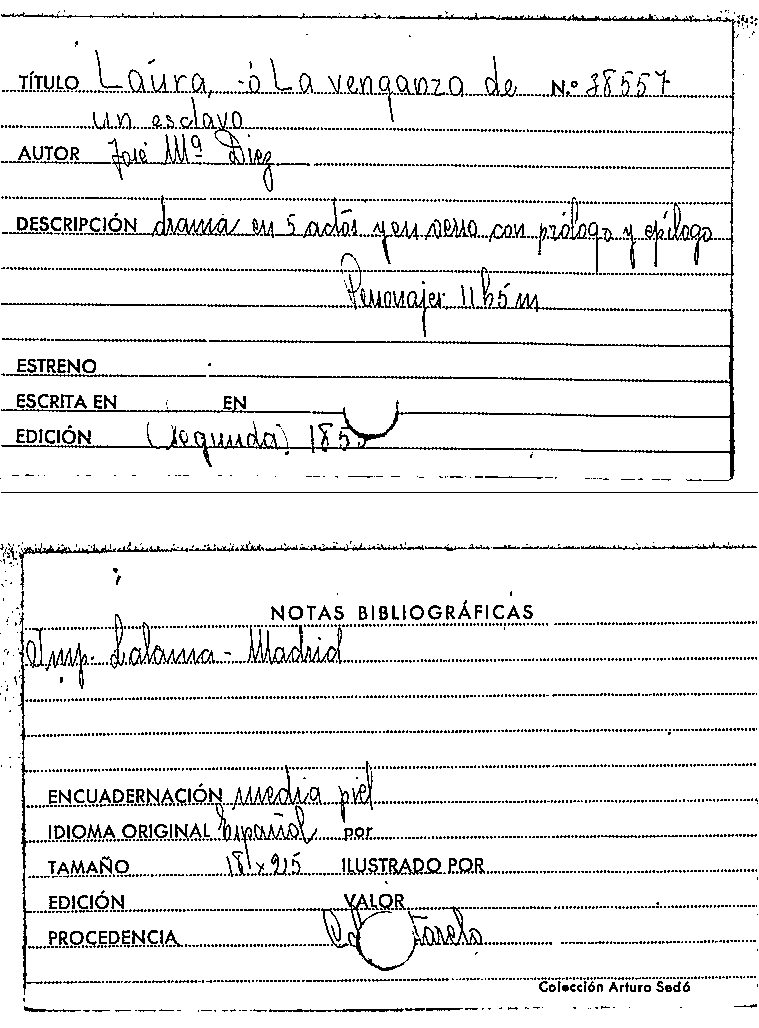 TÍTULO Laura, ó La venganza de N.º 38557
un esclavo
AUTOR José Mª Diez
DESCRIPCIÓN drama en 5 actos y en verso con prólogo y epílogo
Personajes 11 h 5 m
ESTRENO
ESCRITA EN EN
EDICIÓN (segunda) 185
NOTAS BIBLIOGRÁFICAS
Imp. Lalama - Madrid
ENCUADERNACIÓN media piel
IDIOMA ORIGINAL Español por
TAMAÑO ILUSTRADO POR
EDICIÓN VALOR
PROCEDENCIA
Colección Arturo Sedó